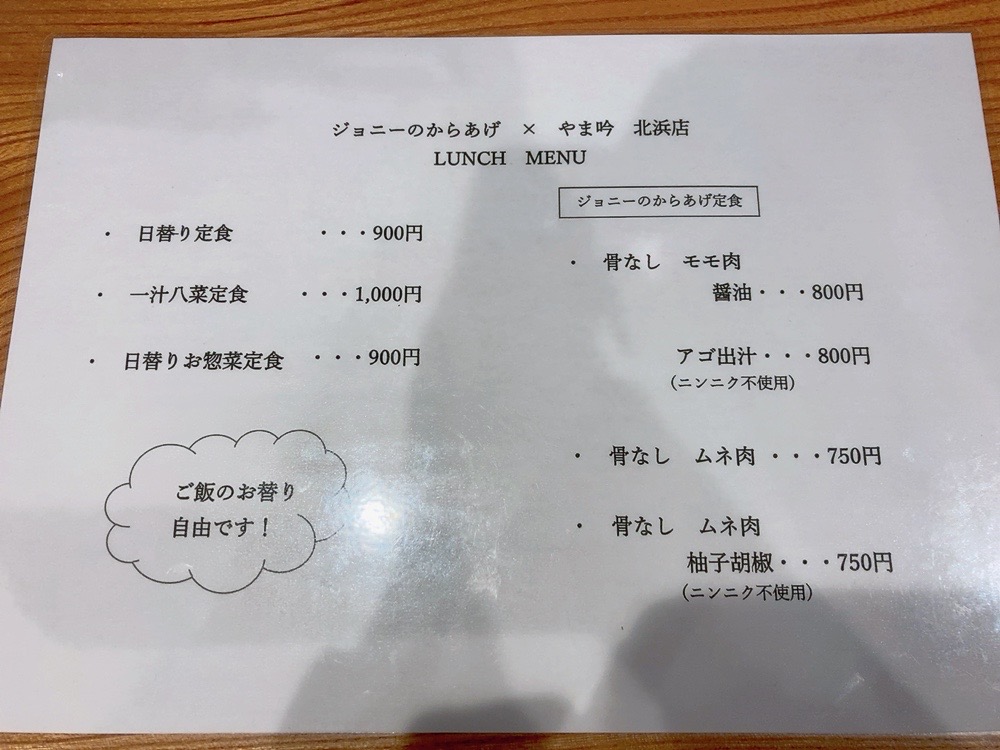 ジョニーのからあげ × やま吟 北浜店
LUNCH MENU
・ 日替り定食 ・・・900円
・ 一汁八菜定食 ・・・1,000円
・ 日替りお惣菜定食 ・・・900円
ご飯のお替り
自由です！
ジョニーのからあげ定食
・ 骨なし モモ肉
醤油・・・800円
アゴ出汁・・・800円
（ニンニク不使用）
・ 骨なし ムネ肉 ・・・750円
・ 骨なし ムネ肉
柚子胡椒・・・750円
（ニンニク不使用）